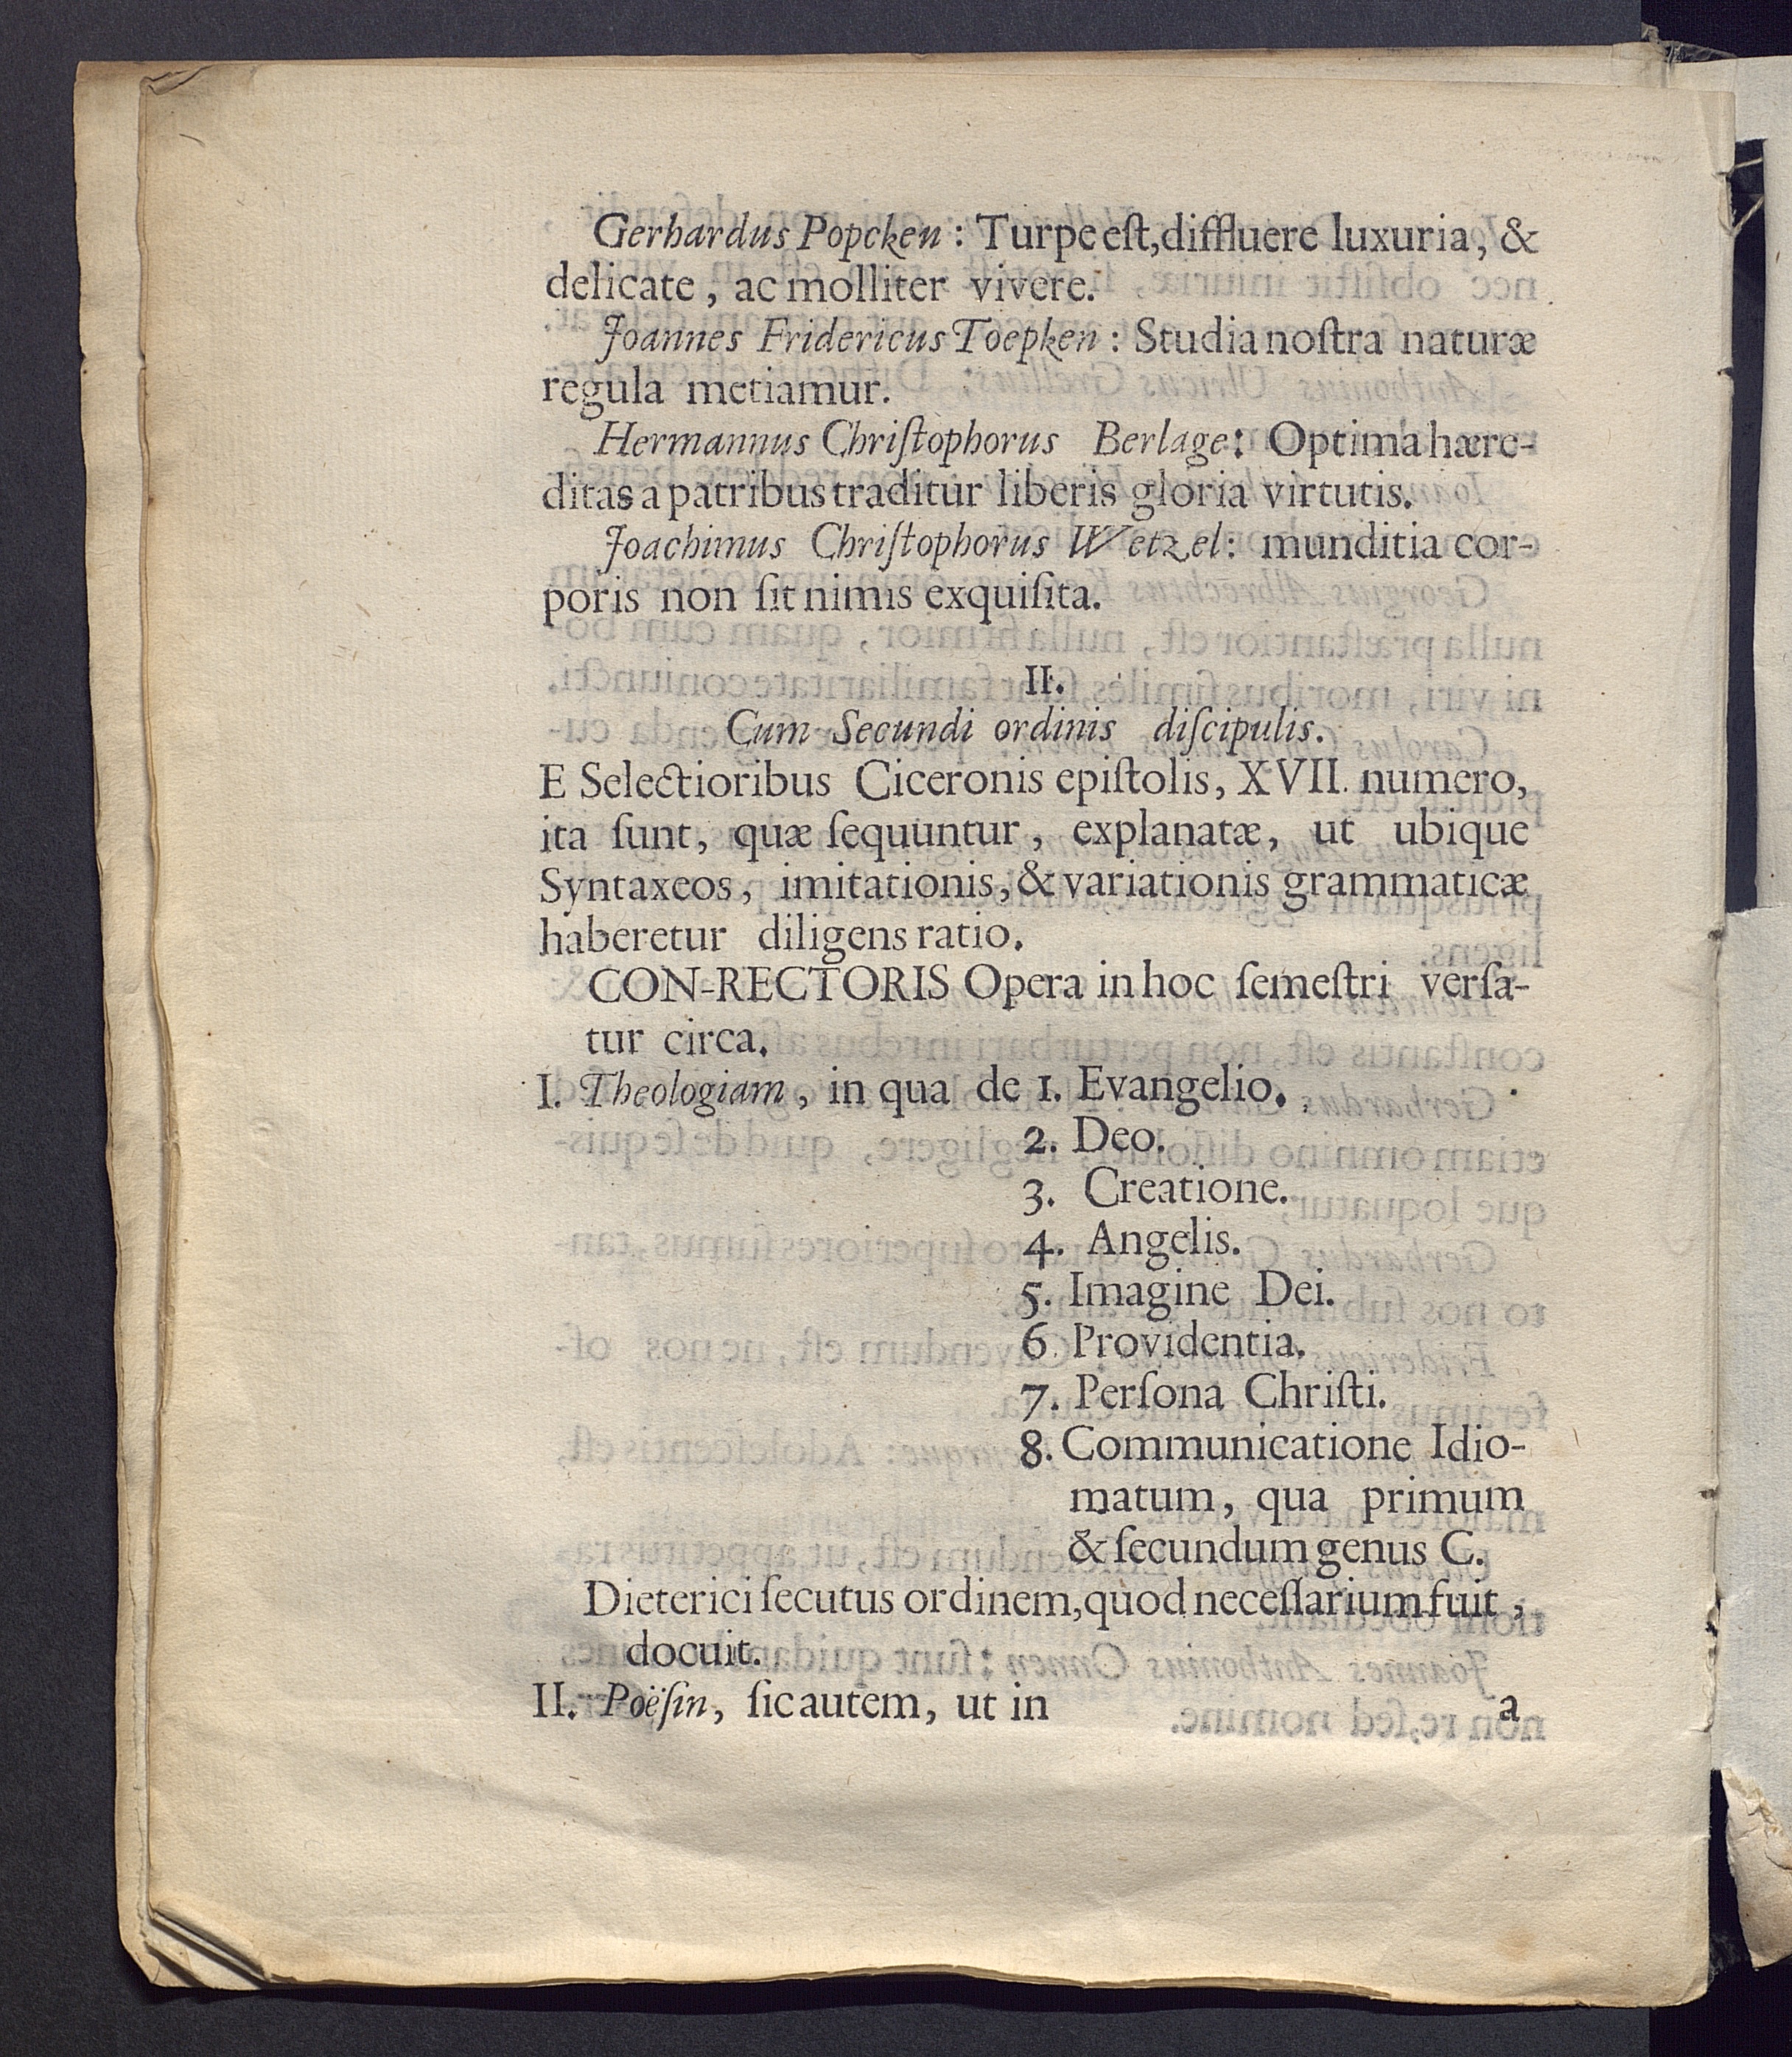 Gerhardus Popcken : Turpe eſt, diffluere luxuria, &
delicate, ac molliter vivere.
Joannes Fridericus Toepken : Studia noſtra naturæ
regula metiamur.
Hermannus Chriſtophorus Berlage: Optima hære-
ditas a patribus traditur liberis gloria virtutis.
Joachimus Chriſtophorus Wetzel: munditia cor-
poris non ſit nimis exquiſita.
II.
Cum Secundi ordinis diſcipulis.
E Selectioribus Ciceronis epiſtolis, XVII. numero,
ita ſunt, quæ ſequuntur, explanatæ, ut ubique
Syntaxeos, imitationis, & variationis grammaticæ
haberetur diligens ratio.
CON-RECTORIS Opera in hoc ſemeſtri verſa-
tur circa.
I. Theologiam, in qua de 1. Evangelio.
2. Deo.
3. Creatione.
4. Angelis.
5. Imagine Dei.
6 Providentia.
7. Perſona Chriſti.
8. Communicatione Idio-
matum, qua primum
& ſecundum genus C.
Dieterici ſecutus ordinem, quod neceſſarium fuit,
docuit.
II. Poëſin, ſic autem, ut in a